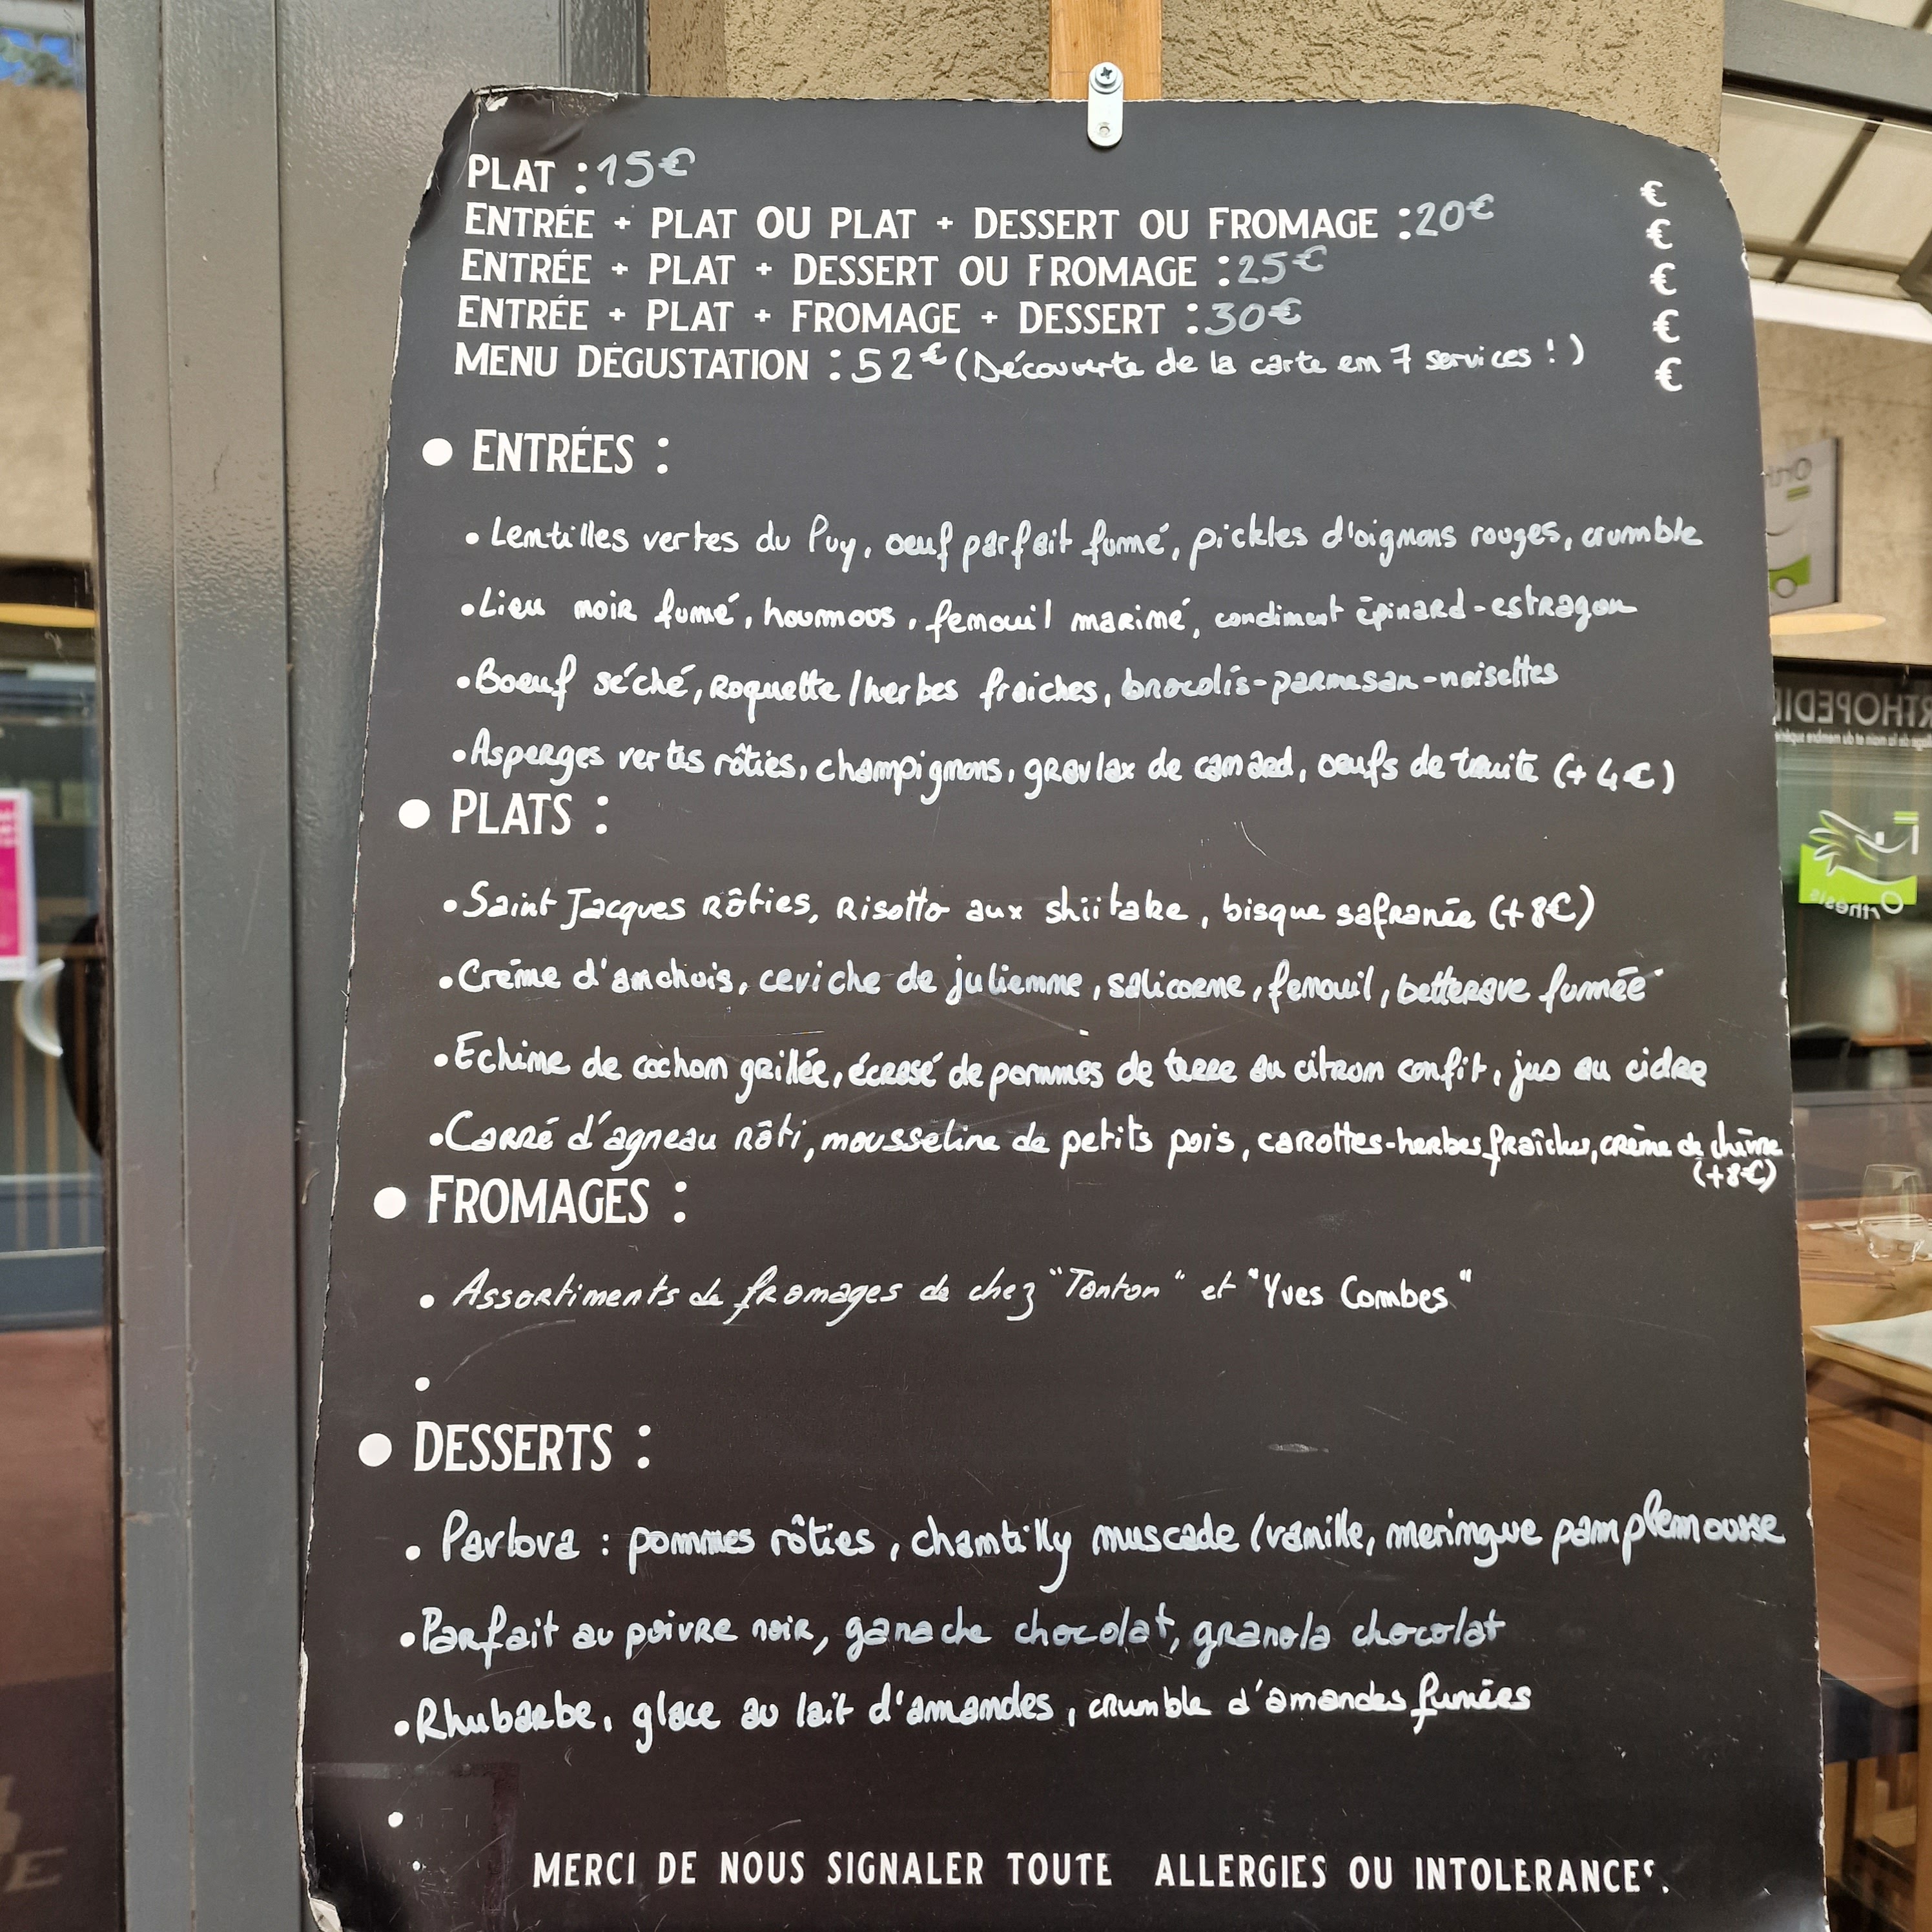 PLAT : 15€
ENTRÉE + PLAT OU PLAT + DESSERT OU FROMAGE : 20€ €
ENTRÉE + PLAT + DESSERT OU FROMAGE : 25€ €
ENTRÉE + PLAT + FROMAGE + DESSERT : 30€ €
MENU DÉGUSTATION : 52€ (Découverte de la carte en 7 services !) €
€
• ENTRÉES :
• Lentilles vertes du Puy, oeuf parfait fumé, pickles d'oignons rouges, crumble
• Lieu noir fumé, houmous, fenouil mariné, condiment épinard-estragon
• Boeuf séché, roquette / herbes fraiches, brocolis-parmesan-noisettes
• Asperges vertes rôties, champignons, gravlax de canard, oeufs de truite (+ 4€)
• PLATS :
• Saint Jacques rôties, risotto aux shiitake, bisque safranée (+8€)
• Crème d'anchois, ceviche de julienne, salicorne, fenouil, betterave fumée
• Echine de cochon grillée, écrasé de pommes de terre au citron confit, jus au cidre
• Carré d'agneau rôti, mousseline de petits pois, carottes-herbes fraîches, crème de chèvre
(+8€)
• FROMAGES :
• Assortiments de fromages de chez "Tonton" et "Yves Combes"
•
• DESSERTS :
• Pavlova : pommes rôties, chantilly muscade / vanille, meringue pamplemousse
• Parfait au poivre noir, ganache chocolat, granola chocolat
• Rhubarbe, glace au lait d'amandes, crumble d'amandes fumées
•
•
MERCI DE NOUS SIGNALER TOUTE ALLERGIES OU INTOLERANCES.
ORTHOPEDI
Orthesis